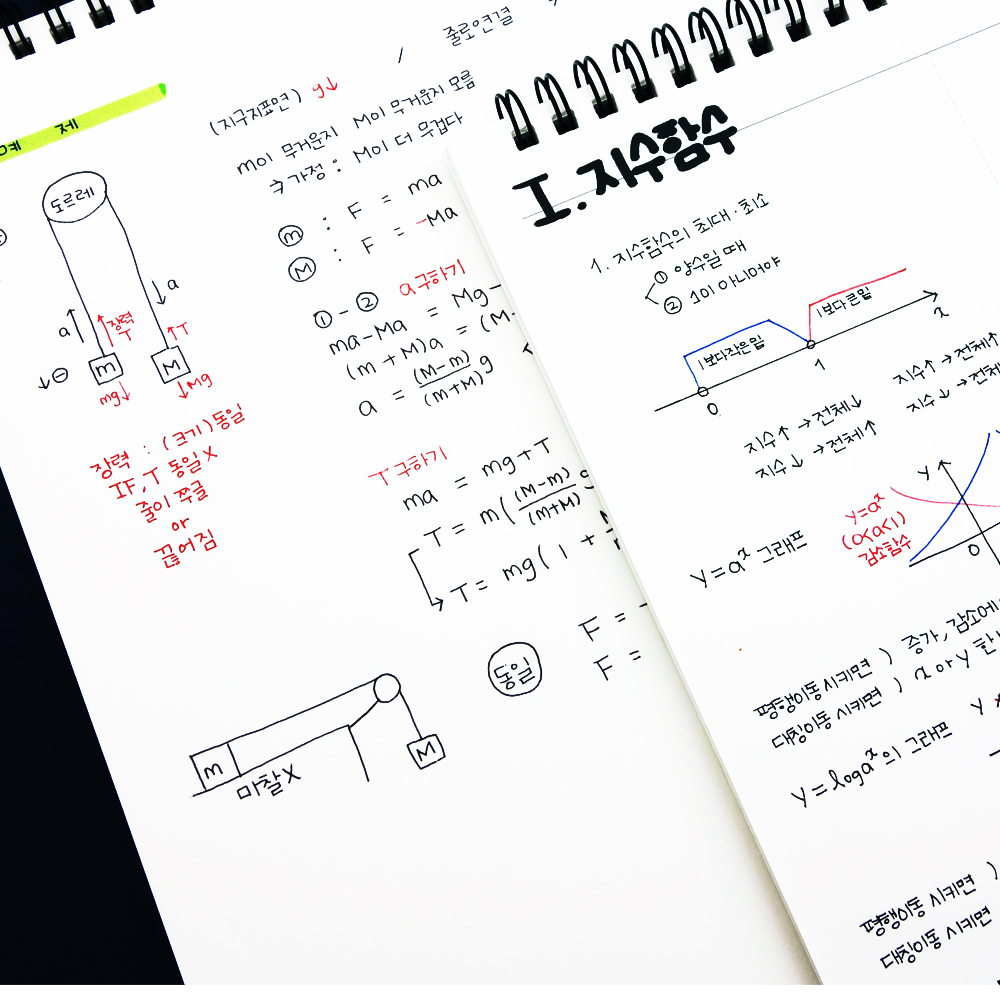 예 제
(지구지표면) g↓ / 줄로연결
m이 무거운지 M이 무거운지 모름
⇒ 가정 : M이 더 무겁다
도르레
a
장력
T
m
mg↓
↓⊖
a
↑T
M
↓Mg
장력 : (크기)동일
IF, T 동일 X
줄이 쭈글
or
끊어짐
ⓜ : F = ma
Ⓜ : F = -Ma
① - ② a 구하기
ma-Ma = Mg-
(m+M)a = (M-
a = (M-m)/(m+M) g
T 구하기
ma = mg+T
T = m( (M-m)/(m+M) g
T = mg( 1 +
동일
F = -
F =
m
마찰X
M
I. 지수함수
1. 지수함수의 최대·최소
① 양수일 때
② 1이 아니어야
1보다작은밑
1보다큰밑
0
1
x
지수↑ → 전체↓
지수↓ → 전체↑
지수↑ → 전체↑
지수↓ → 전체
y=aˣ 그래프
y
y=aˣ
(0<a<1)
감소함수
0
평행이동시키면 ) 증가, 감소에
대칭이동 시키면 ) x or y 한
y=logaˣ의 그래프
y
평행이동 시키면 )
대칭이동 시키면